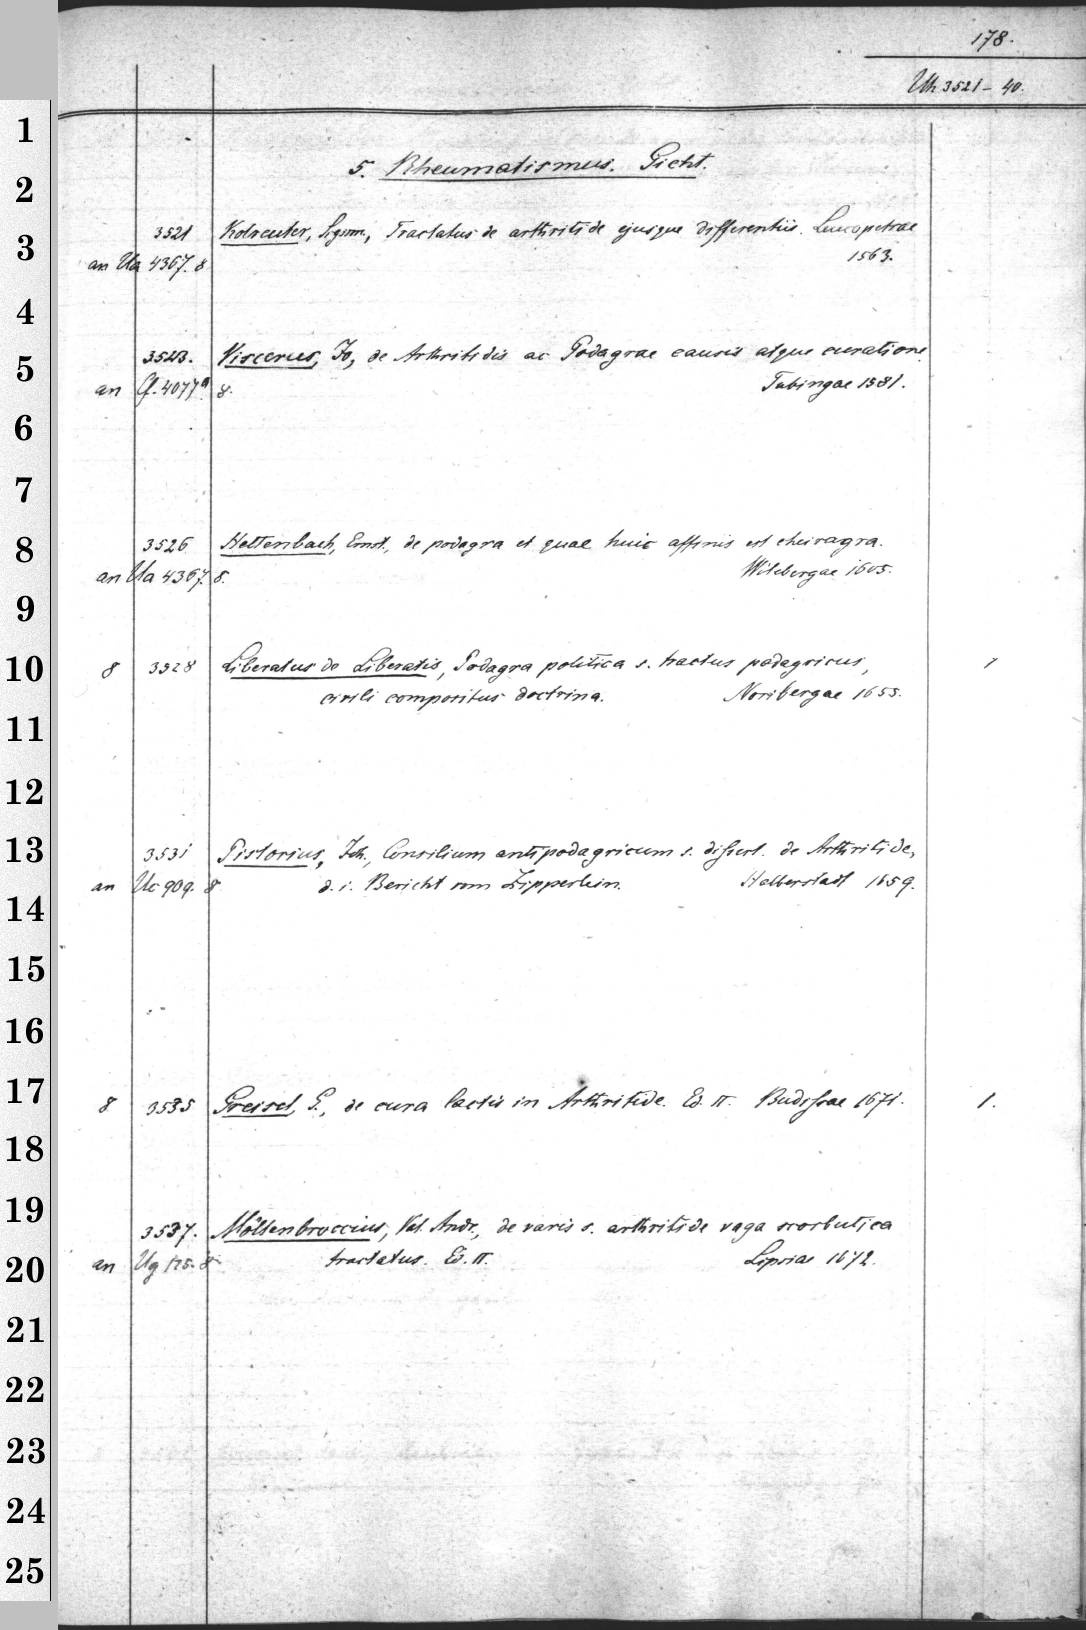 178.
Uh 3521-40.
1
5. Rheumatismus. Gicht.
2
3521 Kolreuter, Sigism., Tractatus de arthritide ejusque differentiis. Leucopetrae
3
an Ua 4367. 8 1563.
4
3523. Viscerus, Jo, de Arthritidis ac Podagrae causis atque curatione.
5
an Cf. 4077a 8. Tubingae 1581.
6
7
3526 Hettenbach, Ernst., de podagra et quae huic affinis est cheiragra.
8
an Ua 4367. 8. Witebergae 1605.
9
8 3528 Liberatus de Liberatis, Podagra politica s. tractus podagricus, 1
10
civili compositus doctrina. Noribergae 1655.
11
12
3531 Pistorius, Joh., Consilium antipodagricum s. dissert. de Arthritide,
13
an Uc 909. 8 d. i. Bericht vom Zipperlein. Halberstadt 1659.
14
15
16
17
8 3535 Greisel, G., de cura lactis in Arthritide. Ed. II. Budissae 1671. 1.
18
19
3537. Möllenbroccius, Val. Andr., de varis s. arthritide vaga scorbutica
20
an Ug 125. 8 tractatus. Ed. II. Lipsiae 1672.
21
22
23
24
25